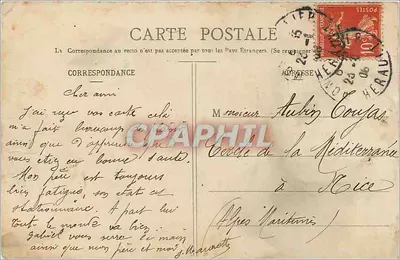 CARTE POSTALE
La Correspondance au recto n'est pas acceptée par tous les Pays Étrangers. (Se renseigner
CORRESPONDANCE
ADRESSE
HERAULT
10
Cher ami
J'ai reçu vos carte celà
m'a fait beaucoup
ainsi que d'apprendre que
vous étiez en bonne santé.
Mon père est toujours
bien fatigué, son état est
stationnaire. A part lui
Tout le monde va bien.
Gabriel vous serre la main
ainsi que mon père et moi
Monsieur Aubin Toujas
Cercle de la Méditerranée
à Nice
(Alpes Maritimes)
CPAPHIL